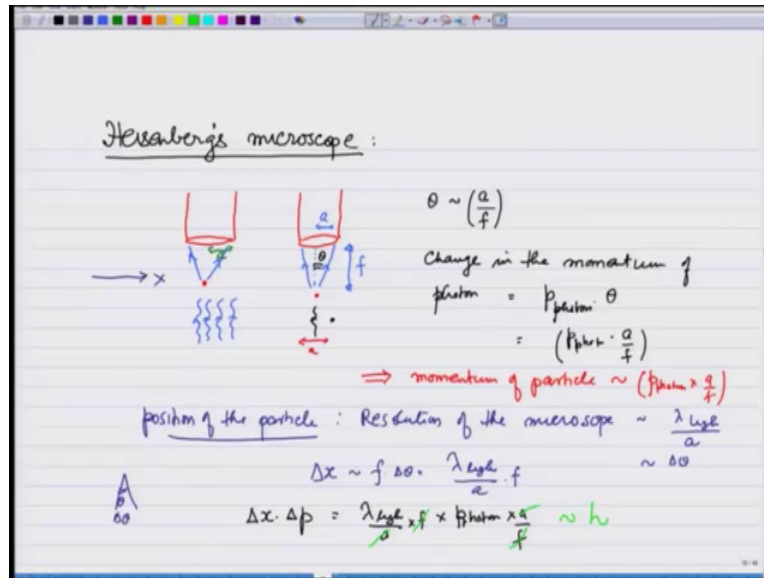 Heisenberg's microscope :
a
θ ~ (a/f)
θ
f
→ x
Change in the momentum of
photon = p_photon · θ
= (p_phot · a/f)
⇒ momentum of particle ~ (p_photon × a/f)
position of the particle : Resolution of the microscope ~ λ_light/a
~ Δθ
Δx ~ f Δθ = λ_light/a · f
Δθ
Δx · Δp = λ_light/a × f × p_photon × a/f ~ h